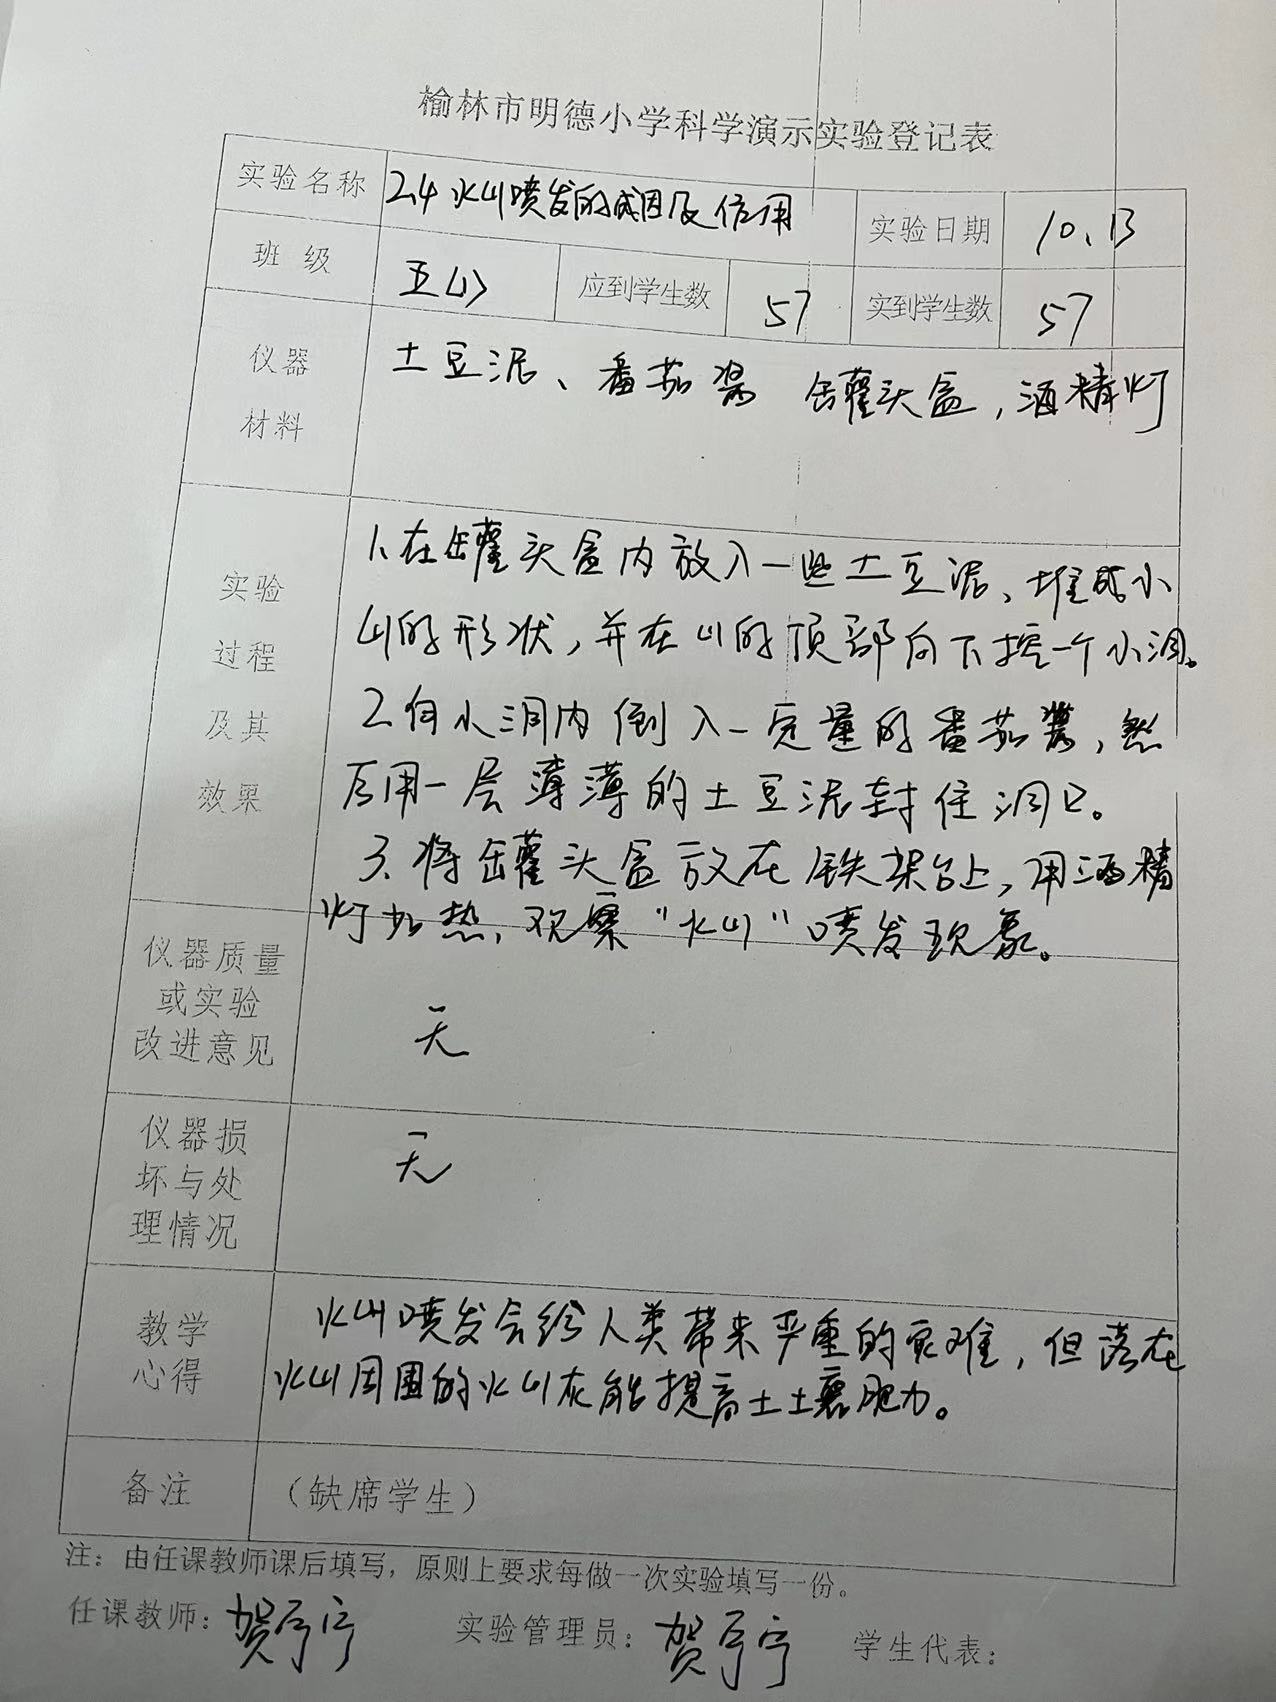 榆林市明德小学科学演示实验登记表
实验名称 2.4 火山喷发的成因及作用 实验日期 10.13
班级 五(1) 应到学生数 57 实到学生数 57
仪器 土豆泥、番茄酱 罐头盒,酒精灯
材料
1.在罐头盒内放入一些土豆泥、堆成小
实验
山的形状,并在山的顶部向下挖一个小洞。
过程
2.向小洞内倒入一定量的番茄酱,然
及其
后用一层薄薄的土豆泥封住洞口。
效果
3.将罐头盒放在铁架台上,用酒精
灯加热,观察"火山"喷发现象。
仪器质量
或实验
改进意见 无
仪器损 无
坏与处
理情况
火山喷发会给人类带来严重的灾难,但落在
教学
火山周围的火山灰能提高土土壤肥力。
心得
备注 (缺席学生)
注:由任课教师课后填写,原则上要求每做一次实验填写一份。
任课教师: 贺宁 实验管理员: 贺宁 学生代表: